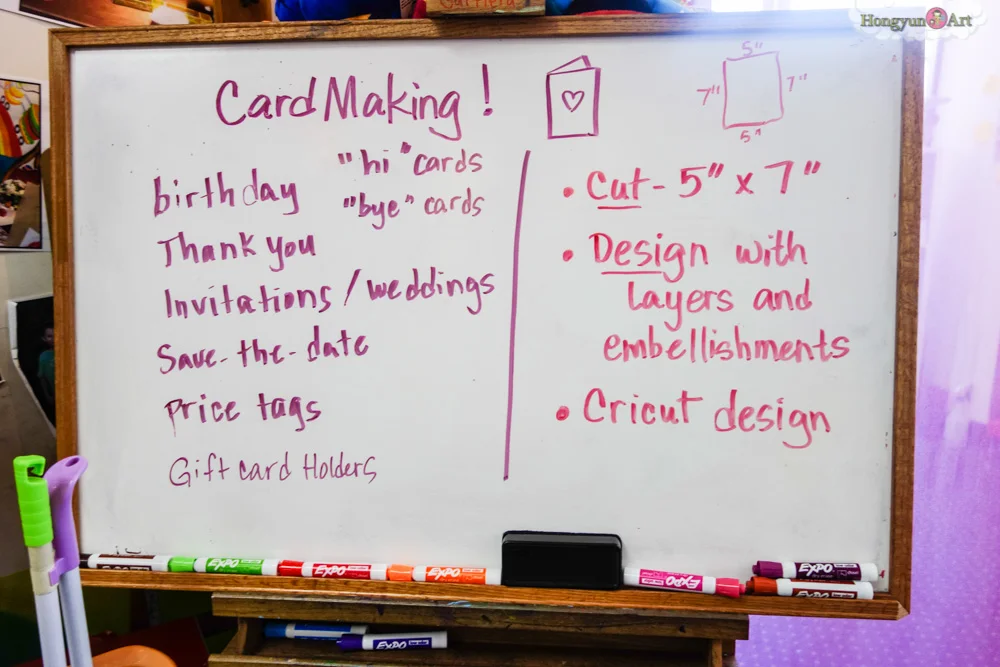 Hongyun Art
Card Making!
birthday
"hi" cards
"bye" cards
Thank you
Invitations / weddings
Save-the-date
Price tags
Gift card Holders
5"
7" 7"
5"
• Cut - 5" x 7"
• Design with
layers and
embellishments
• Cricut design
EXPO
EXPO
EXPO
EXPO
EXPO
EXPO